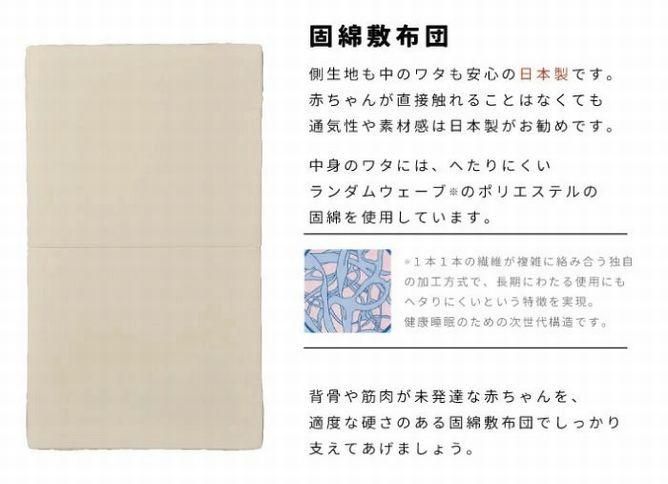 固綿敷布団
側生地も中のワタも安心の日本製です。
赤ちゃんが直接触れることはなくても
通気性や素材感は日本製がお勧めです。
中身のワタには、へたりにくい
ランダムウェーブ※のポリエステルの
固綿を使用しています。
※１本１本の繊維が複雑に絡み合う独自
の加工方式で、長期にわたる使用にも
ヘタりにくいという特徴を実現。
健康睡眠のための次世代構造です。
背骨や筋肉が未発達な赤ちゃんを、
適度な硬さのある固綿敷布団でしっかり
支えてあげましょう。